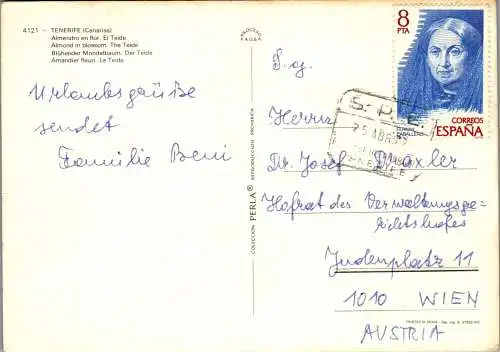 4121 - TENERIFE (Canarias)
Almendro en flor. El Teide
Almond in blossom. The Teide
Blühender Mandelbaum. Der Teide
Amandier fleuri. Le Teide
Urlaubsgrüße
sendet
Familie Beni
COLECCION PERLA® REPRODUCCION PROHIBIDA
8
PTA
CORREOS
ESPAÑA
CABALLERO
S. P. E.
25 ABR
S.g.
Herrn
Dr. Josef Draxler
Hofrat des Verwaltungsge-
richtshofes
Judenplatz 11
1010 WIEN
AUSTRIA